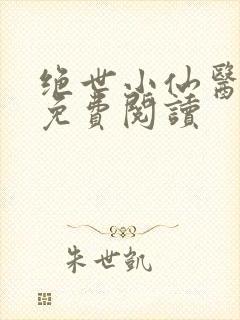 绝世小仙醫
免費閱讀
朱世凱